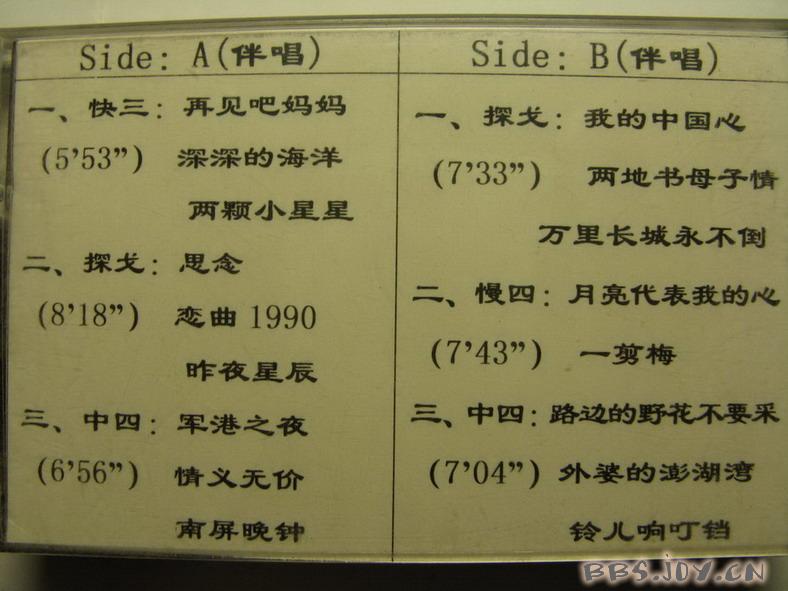 Side: A(伴唱)
一、快三: 再见吧妈妈
(5'53") 深深的海洋
两颗小星星
二、探戈: 思念
(8'18") 恋曲 1990
昨夜星辰
三、中四: 军港之夜
(6'56") 情义无价
南屏晚钟
Side: B(伴唱)
一、探戈: 我的中国心
(7'33") 两地书母子情
万里长城永不倒
二、慢四: 月亮代表我的心
(7'43") 一剪梅
三、中四: 路边的野花不要采
(7'04") 外婆的澎湖湾
铃儿响叮铛
BBS.JOY.CN